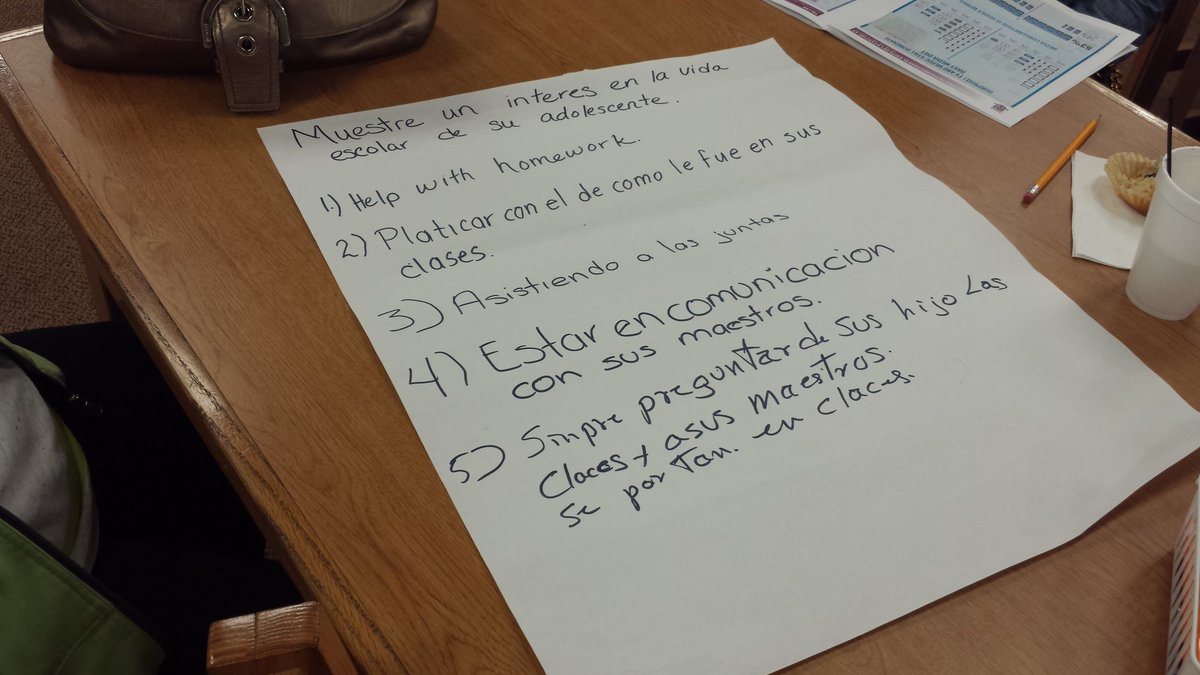 Muestre un interes en la vida
escolar de su adolescente.
1.) Help with homework.
2) Platicar con el de como le fue en sus
clases.
3) Asistiendo a las juntas
4) Estar en comunicacion
con sus maestros.
5) Sinpre preguntar de sus hijo Las
Claces y asus maestros.
se por Tan. en claces.